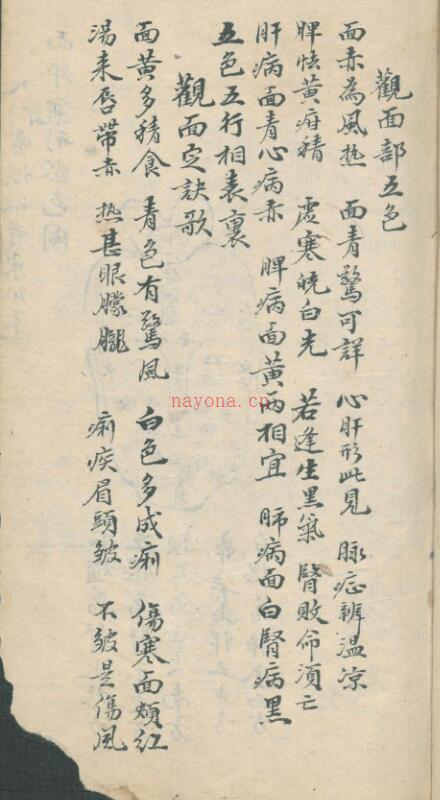 觀面部五色
面赤為風热 面青驚可詳 心肝形此見 脉症辨温凉
脾怯黄疳積 虚寒㿠白光 若逢生黑氣 腎敗命須亡
肝病面青心病赤 脾病面黄两相宜 肺病面白腎病黑
五色五行相表裏
觀面定訣歌
面黄多積食 青色有驚風 白色多成痢 傷寒面頰紅
湯來唇帶赤 热甚眼朦朧 痢疾眉頭皱 不皱是傷風
nayona.cn